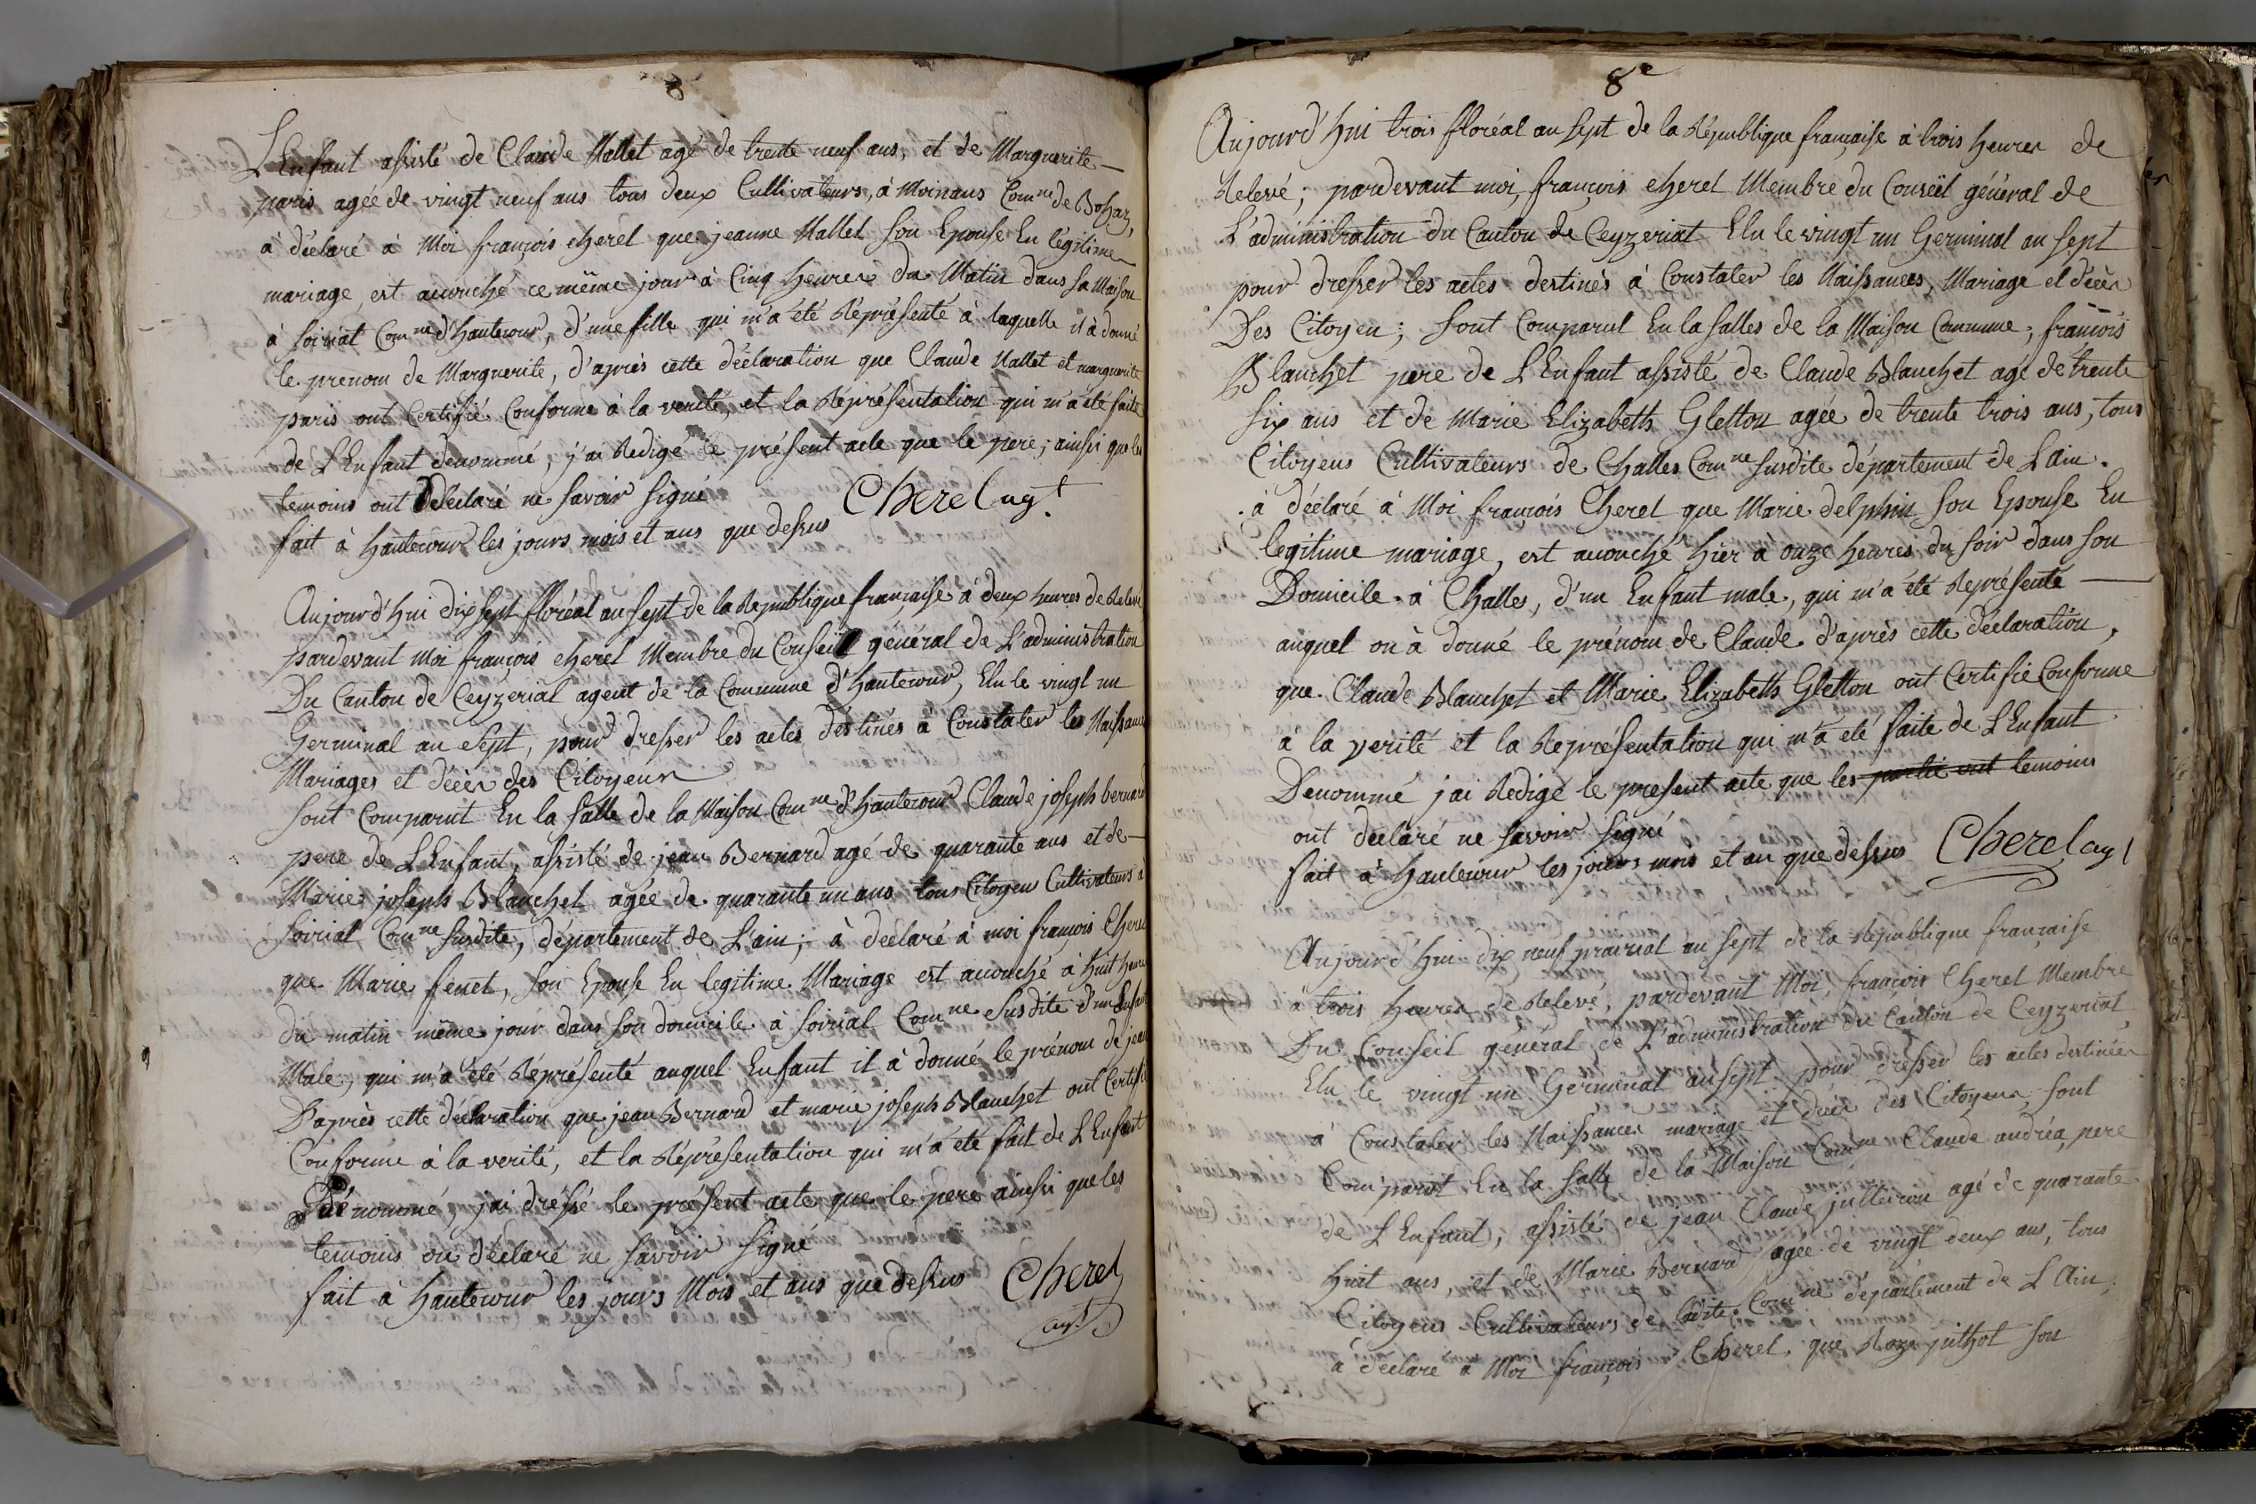 8
L'Enfant assisté de Claude Mallet agé de trente neuf ans, et de Marguerite
paris agée de vingt neuf ans tous deux Cultivateurs, à Moinans Comne de Bohaz,
à déclaré à Moi françois cherel que jeanne Mallet son Epouse En légitime
mariage est accouché ce même jour à Cinq heures du Matin dans sa Maison
à soiriat Comne d'hautecour, d'une fille qui m'a été Réprésenté à laquelle il à donné
le prenom de Marguerite, d'après cette déclaration que Claude Mallet et marguerite
paris ont Certifié Conforme à la verité, et la Réprésentation qui m'a été faite
de L'Enfant denommé, j'ai Redigé le présent acte que le pere, ainsi que les
temoins ont Déclaré ne savoir signé
fait à hautecour les jours mois et ans que dessus Cherel agt
Aujourd'hui dix sept floréal an sept de la Republique française à deux heures de Relevé
pardevant Moi françois cherel Membre du Conseil général de L'administration
Du Canton de Ceyzeriat agent de la Commune d'hautecour, Elu le vingt un
Germinal an sept, pour dresser les actes déstinés à Constater les Naissances
Mariages et décès des Citoyens
sont Comparut En la salle de la Maison Comne d'hautecour Claude joseph bernard
pere de L'Enfant, assisté de jean Bernard agé de quarante ans et de
Marie joseph Blanchet agée de quarante un ans tous Citoyens Cultivateurs à
soiriat Comne susdite, département de L'ain; à déclaré à moi françois Cherel
que Marie fenet, son Epouse En legitime Mariage est accouché à huit heures
du matin même jour dans son domicile à soiriat Comne susdite d'un Enfant
Male, qui m'a été Réprésenté auquel Enfant il à donné le prénom de jean
D'après cette déclaration que jean Bernard et marie joseph Blanchet ont Certifié
Conforme à la verité, et la Réprésentation qui m'a été fait de L'Enfant
Dénommé, j'ai dréssé le présent acte que le pere ainsi que les
temoins on déclaré ne savoir signé
fait à hautecour les jours Mois et ans que dessus Cherel
agt
8e
Aujourd'hui trois floréal an sept de la République française à trois heures de
Relevé; pardevant moi, françois cherel Membre du Conseil général de
L'administration du Canton de Ceyzeriat Elu le vingt un Germinal an sept
pour dresser les actes destinés à Constater les Naissances, Mariage et décès
Des Citoyen; sont Comparut En la salles de la Maison Commune; françois
Blanchet pere de L'Enfant assisté de Claude Blanchet agé de trente
six ans et de Marie Elizabeth Gletton agée de trente trois ans, tous
Citoyens Cultivateurs de Challes Comne susdite département de L'ain.
à déclaré à Moi françois Cherel que Marie delphin son Epouse En
legitime mariage, est accouché hier à onze heures du soir dans son
Domicile à Challes, d'un Enfant male, qui m'a été Représenté
auquel on à donné le prénom de Claude d'après cette déclaration,
que Claude Blanchet et Marie Elizabeth Gletton ont Certifié Conforme
à la verité et la Représentation qui m'a été faite de L'Enfant
Denommé j'ai Redigé le présent acte que les partie ont temoins
ont déclaré ne savoir signé
fait à hautecour les jours mois et an que dessus Cherel agt
Aujourd'hui dix neuf prairial an sept de la République française
à trois heures de Relevé, pardevant Moi, françois Cherel Membre
Du Conseil général de L'administration du Canton de Ceyzeriat
Elu le vingt un Germinal an sept pour dresser les actes destinées
à Constater les Naissances mariage et décès des Citoyens sont
Comparut En la salle de la Maison Comne Claude andréa pere
de L'Enfant, assisté de jean Claude juilleron agé de quarante
huit ans, et de Marie Bernard agée de vingt deux ans, tous
Citoyens Cultivateurs de ladite Comne département de L'Ain,
à déclaré à Moi françois Cherel que Roze pithot son